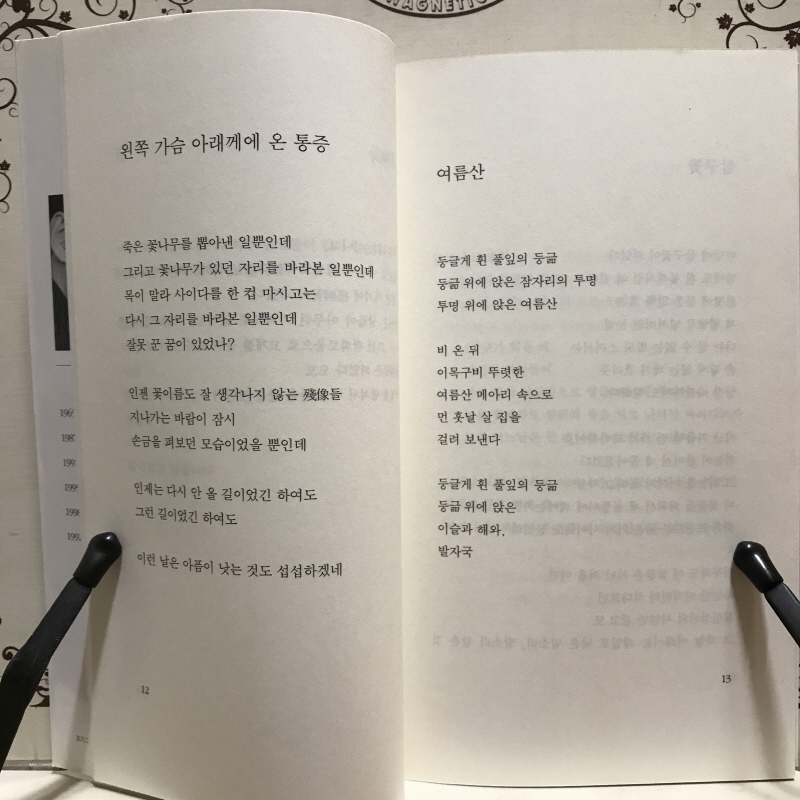 MAGNETIC
왼쪽 가슴 아래께에 온 통증
죽은 꽃나무를 뽑아낸 일뿐인데
그리고 꽃나무가 있던 자리를 바라본 일뿐인데
목이 말라 사이다를 한 컵 마시고는
다시 그 자리를 바라본 일뿐인데
잘못 꾼 꿈이 있었나?
인젠 꽃이름도 잘 생각나지 않는 殘像들
지나가는 바람이 잠시
손금을 펴보던 모습이었을 뿐인데
인제는 다시 안 올 길이었긴 하여도
그런 길이었긴 하여도
이런 날은 아픔이 낫는 것도 섭섭하겠네
12
여름산
둥글게 휜 풀잎의 둥긂
둥긂 위에 앉은 잠자리의 투명
투명 위에 앉은 여름산
비 온 뒤
이목구비 뚜렷한
여름산 메아리 속으로
먼 훗날 살 집을
걸려 보낸다
둥글게 휜 풀잎의 둥긂
둥긂 위에 앉은
이슬과 해와,
발자국
13